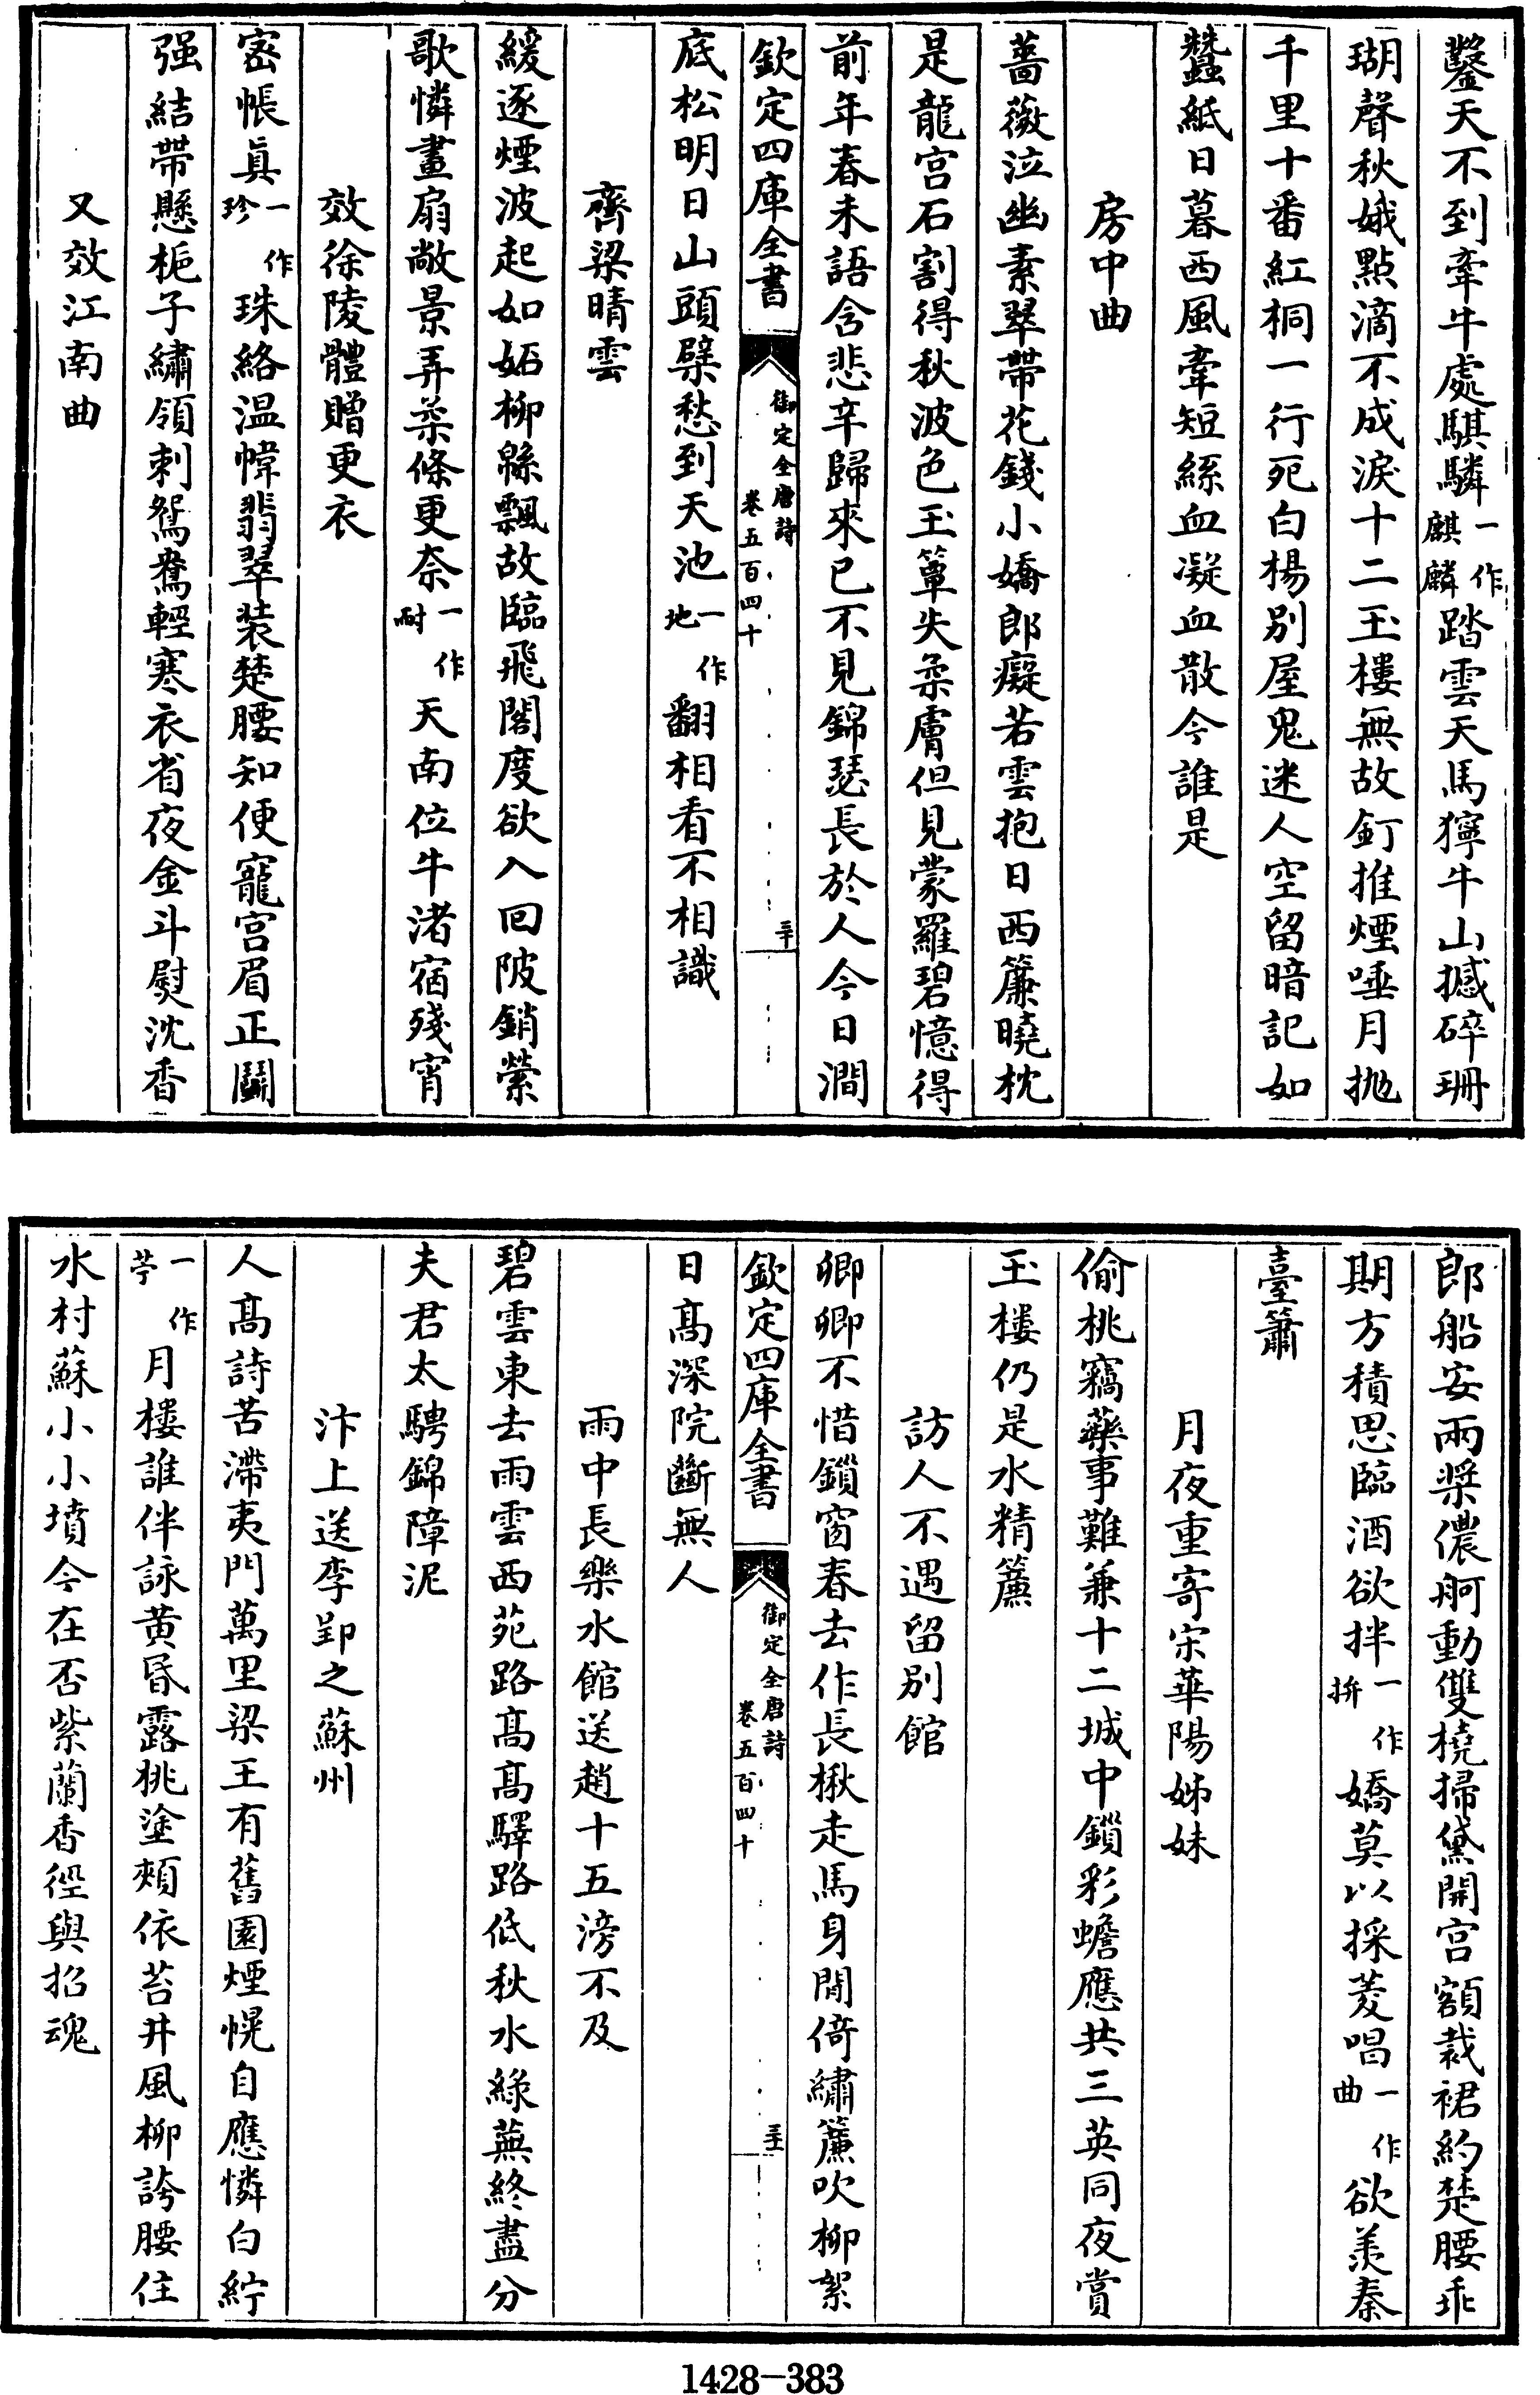 鑿天不到牽牛處騏驎一作麒麟踏雲天馬獰牛山撼碎珊
瑚聲秋娥點滴不成淚十二玉樓無故釘推煙唾月拋
千里十番紅桐一行死白楊別屋鬼迷人空留暗記如
蠶紙日暮西風牽短絲血凝血散今誰是
房中曲
薔薇泣幽素翠帶花錢小嬌郎癡若雲抱日西簾曉枕
是龍宮石割得秋波色玉簟失柔膚但見蒙羅碧憶得
前年春未語含悲辛歸來已不見錦瑟長於人今日澗
欽定四庫全書 御定全唐詩 卷五百四十 三十
底松明日山頭檗愁到天池一作地翻相看不相識
齊梁晴雲
緩逐煙波起如妬柳緜飄故臨飛閣度欲入回陂銷縈
歌憐畫扇敞景弄柔條更奈一作耐天南位牛渚宿殘宵
效徐陵體贈更衣
密帳真一作珍珠絡溫幃翡翠裝楚腰知便寵宮眉正鬭
强結帶懸梔子繡領刺鴛鴦輕寒衣省夜金斗熨沈香
又效江南曲
郎船安兩槳儂舸動雙橈掃黛開宮額裁裙約楚腰乖
期方積思臨酒欲拌一作拚嬌莫以採菱唱一作曲欲羨秦
臺簫
月夜重寄宋華陽姊妹
偷桃竊藥事難兼十二城中鎖彩蟾應共三英同夜賞
玉樓仍是水精簾
訪人不遇留別館
卿卿不惜鎖窗春去作長楸走馬身閒倚繡簾吹柳絮
欽定四庫全書 御定全唐詩 卷五百四十 三十一
日高深院斷無人
雨中長樂水館送趙十五滂不及
碧雲東去雨雲西苑路高高驛路低秋水綠蕪終盡分
夫君太騁錦障泥
汴上送李郢之蘇州
人高詩苦滯夷門萬里梁王有舊園煙幌自應憐白紵
一作苧月樓誰伴詠黃昏露桃塗頰依苔井風柳誇腰住
水村蘇小小墳今在否紫蘭香徑與招魂
1428-383